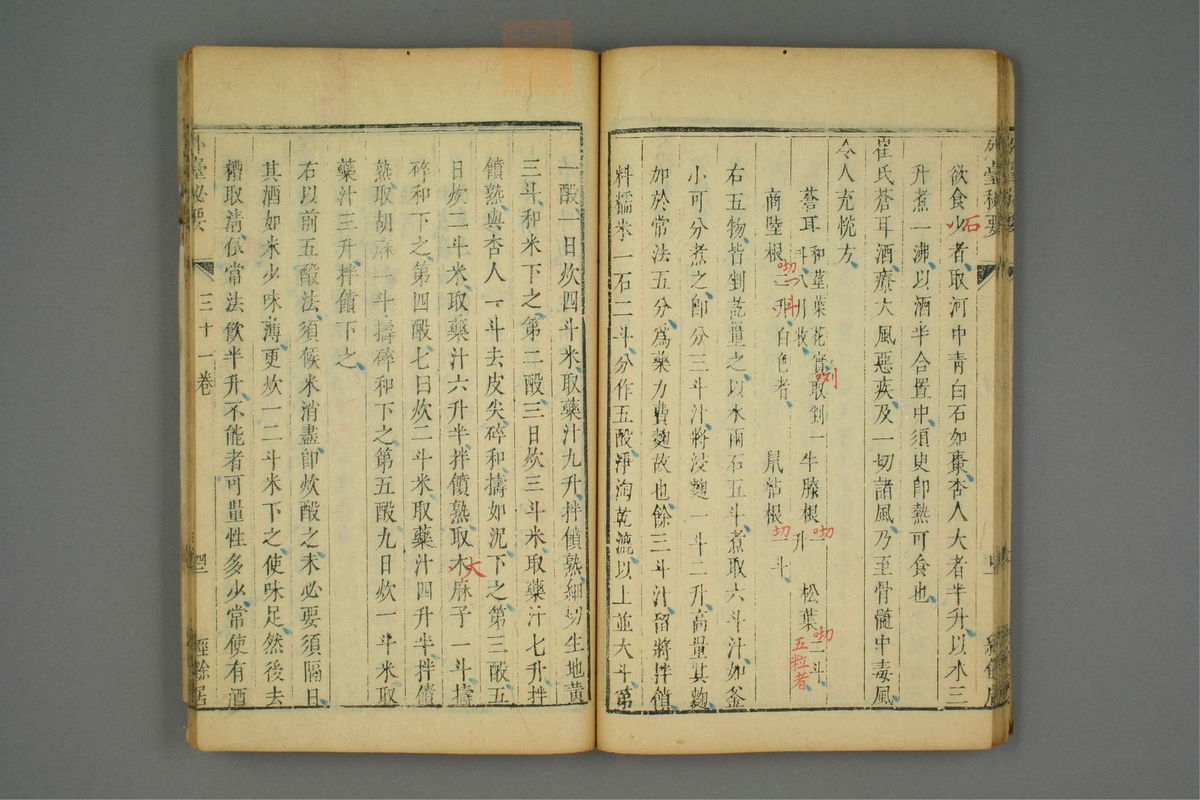 欲食少者取河中青白石如棗杏人大者半升以水三
石
升煮一沸以酒半合置中須臾卽熱可食也
崔氏蒼耳酒療大風惡疾及一切諸風乃至骨髓中毒風
令人充悅方
蒼耳和莖葉花實取剉一斗八月收 牛膝根一升 松葉二斗
剉
切
切
五粒者
商陸根二升白色者 鼠粘根一斗
切一斗
切
右五物皆剉乾量之以水兩石五斗煮取六斗汁如釜
小可分煮之卽分三斗汁將浸麴一斗二升高量其麴
如於常法五分爲藥力費麴故也餘三斗汁留將拌饋
料糯米一石二斗分作五酘淨淘乾漉以上並大斗第
一酘一日炊四斗米取藥汁九升拌饋熟細切生地黃
三斗和米下之第二酘三日炊三斗米取藥汁七升拌
饋熟與杏人一斗去皮尖碎和擣如泥下之第三酘五
日炊二斗米取藥汁六升半拌饋熟取木麻子一斗擣
大
碎和下之第四酘七日炊二斗米取藥汁四升半拌饋
熟取胡麻一斗擣碎和下之第五酘九日炊一斗米取
藥汁三升拌饋下之
右以前五酘法須候米消盡卽炊酘之未必要須隔日
其酒如米少味薄更炊一二斗米下之使味足然後去
糟取清依常法飲半升不能者可量性多少常使有酒
外臺祕要 三十一卷 經餘居